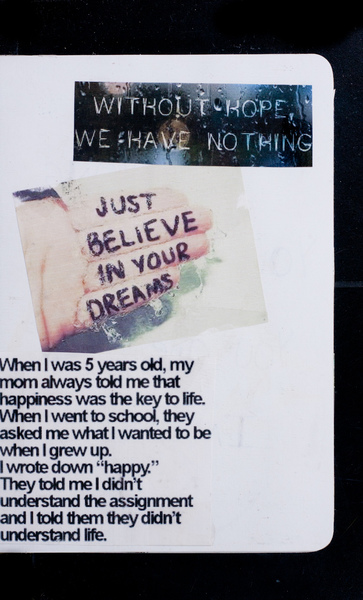 WITHOUT HOPE
WE HAVE NOTHING
JUST
BELIEVE
IN YOUR
DREAMS
When I was 5 years old, my
mom always told me that
happiness was the key to life.
When I went to school, they
asked me what I wanted to be
when I grew up.
I wrote down “happy.”
They told me I didn’t
understand the assignment
and I told them they didn’t
understand life.